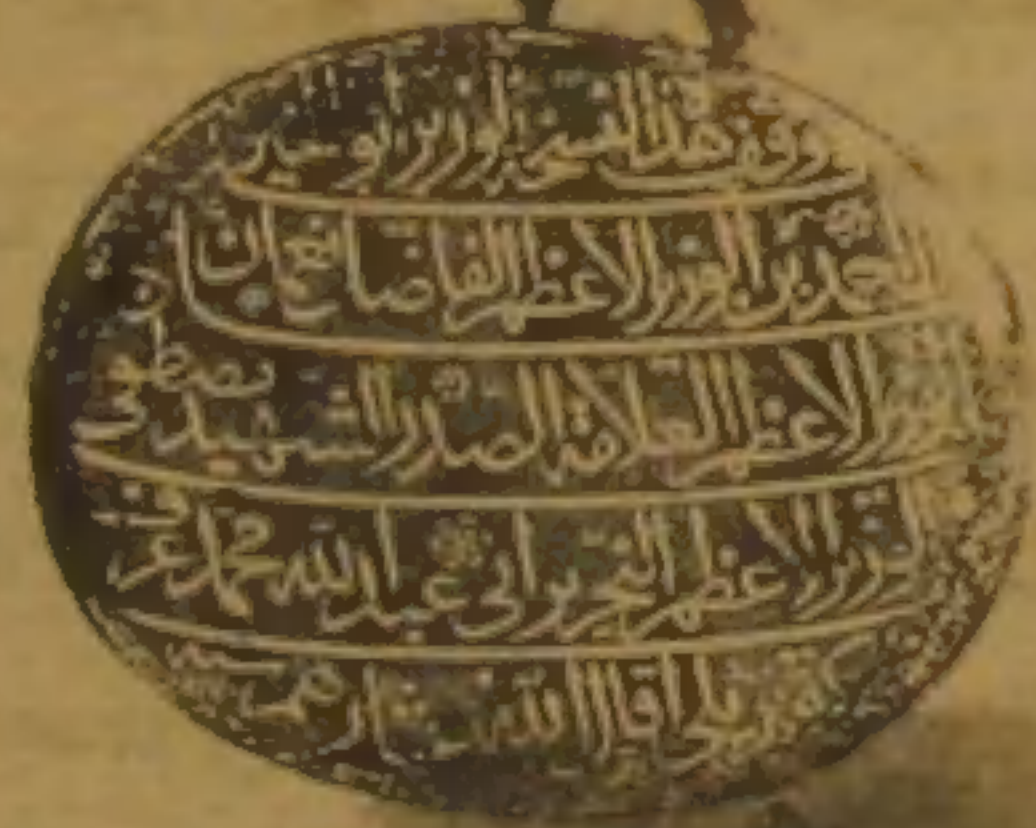 وقف هذا النسخة الوزير ابو الخير
احمد بن الوزير الاعظم الفاضل نعمان
ابن الوزير الاعظم العلامة الصدر الشهيد مصطفى
ابن الوزير الاعظم النحرير ابي عبد الله محمد عرف
كوپريلي اقال الله عثارهم